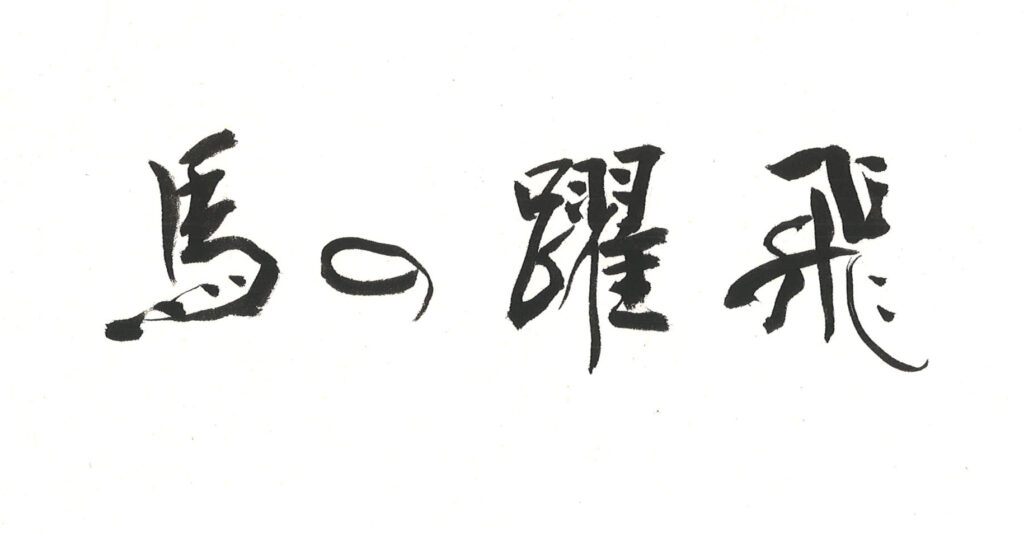 飛躍の馬